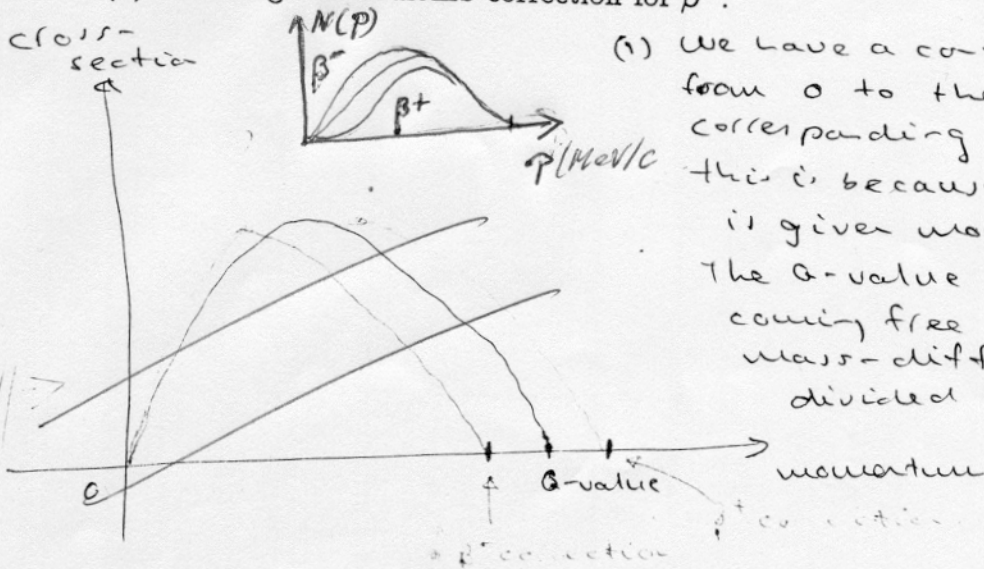 correction for β
cross-
section
N(p)
β⁻
β⁺
p/MeV/c
(1) We have a con
from 0 to the
corresponding
this is because
is given mo
The Q-value
coming free
mass-diff
divided
momentum
0
Q-value
β⁺ correction
β⁻ correction